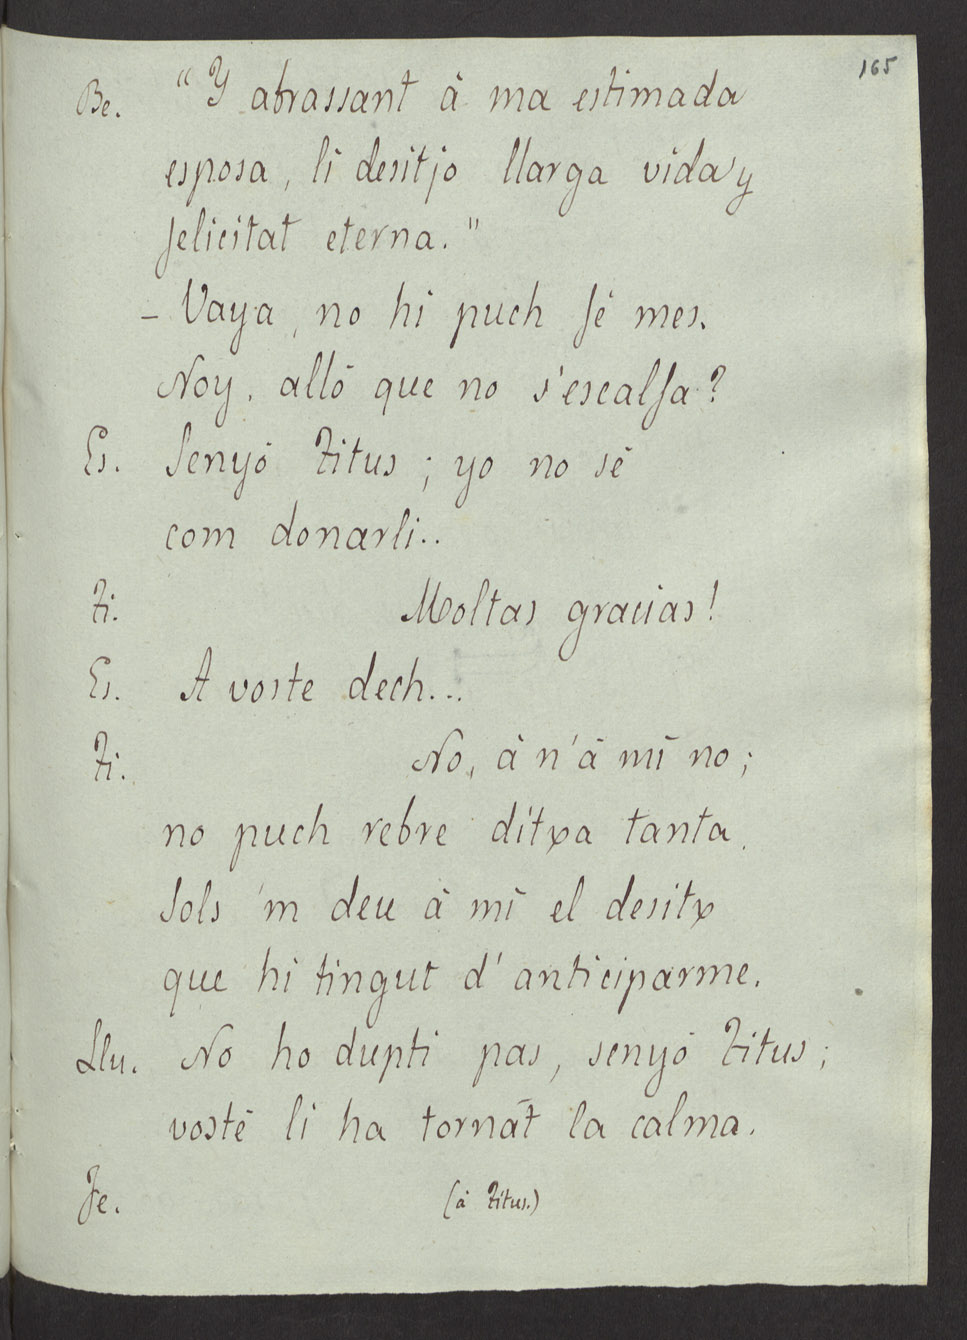 165
Be. "Y abrassant á ma estimada
esposa, li desitjo llarga vida y
felicitat eterna."
- Vaya, no hi puch fé mes.
Noy, alló que no s'escalfa?
Es. Senyó Titus; yo no sé
com donarli..
Ti. Moltas gracias!
Es. A voste dech...
Ti. No, á n'á mí no;
no puch rebre ditxa tanta.
Sols 'm deu á mí el desitx
que hi tingut d'anticiparme.
Llu. No ho dupti pas, senyó Titus;
vosté li ha tornát la calma.
Fe. (á Titus.)